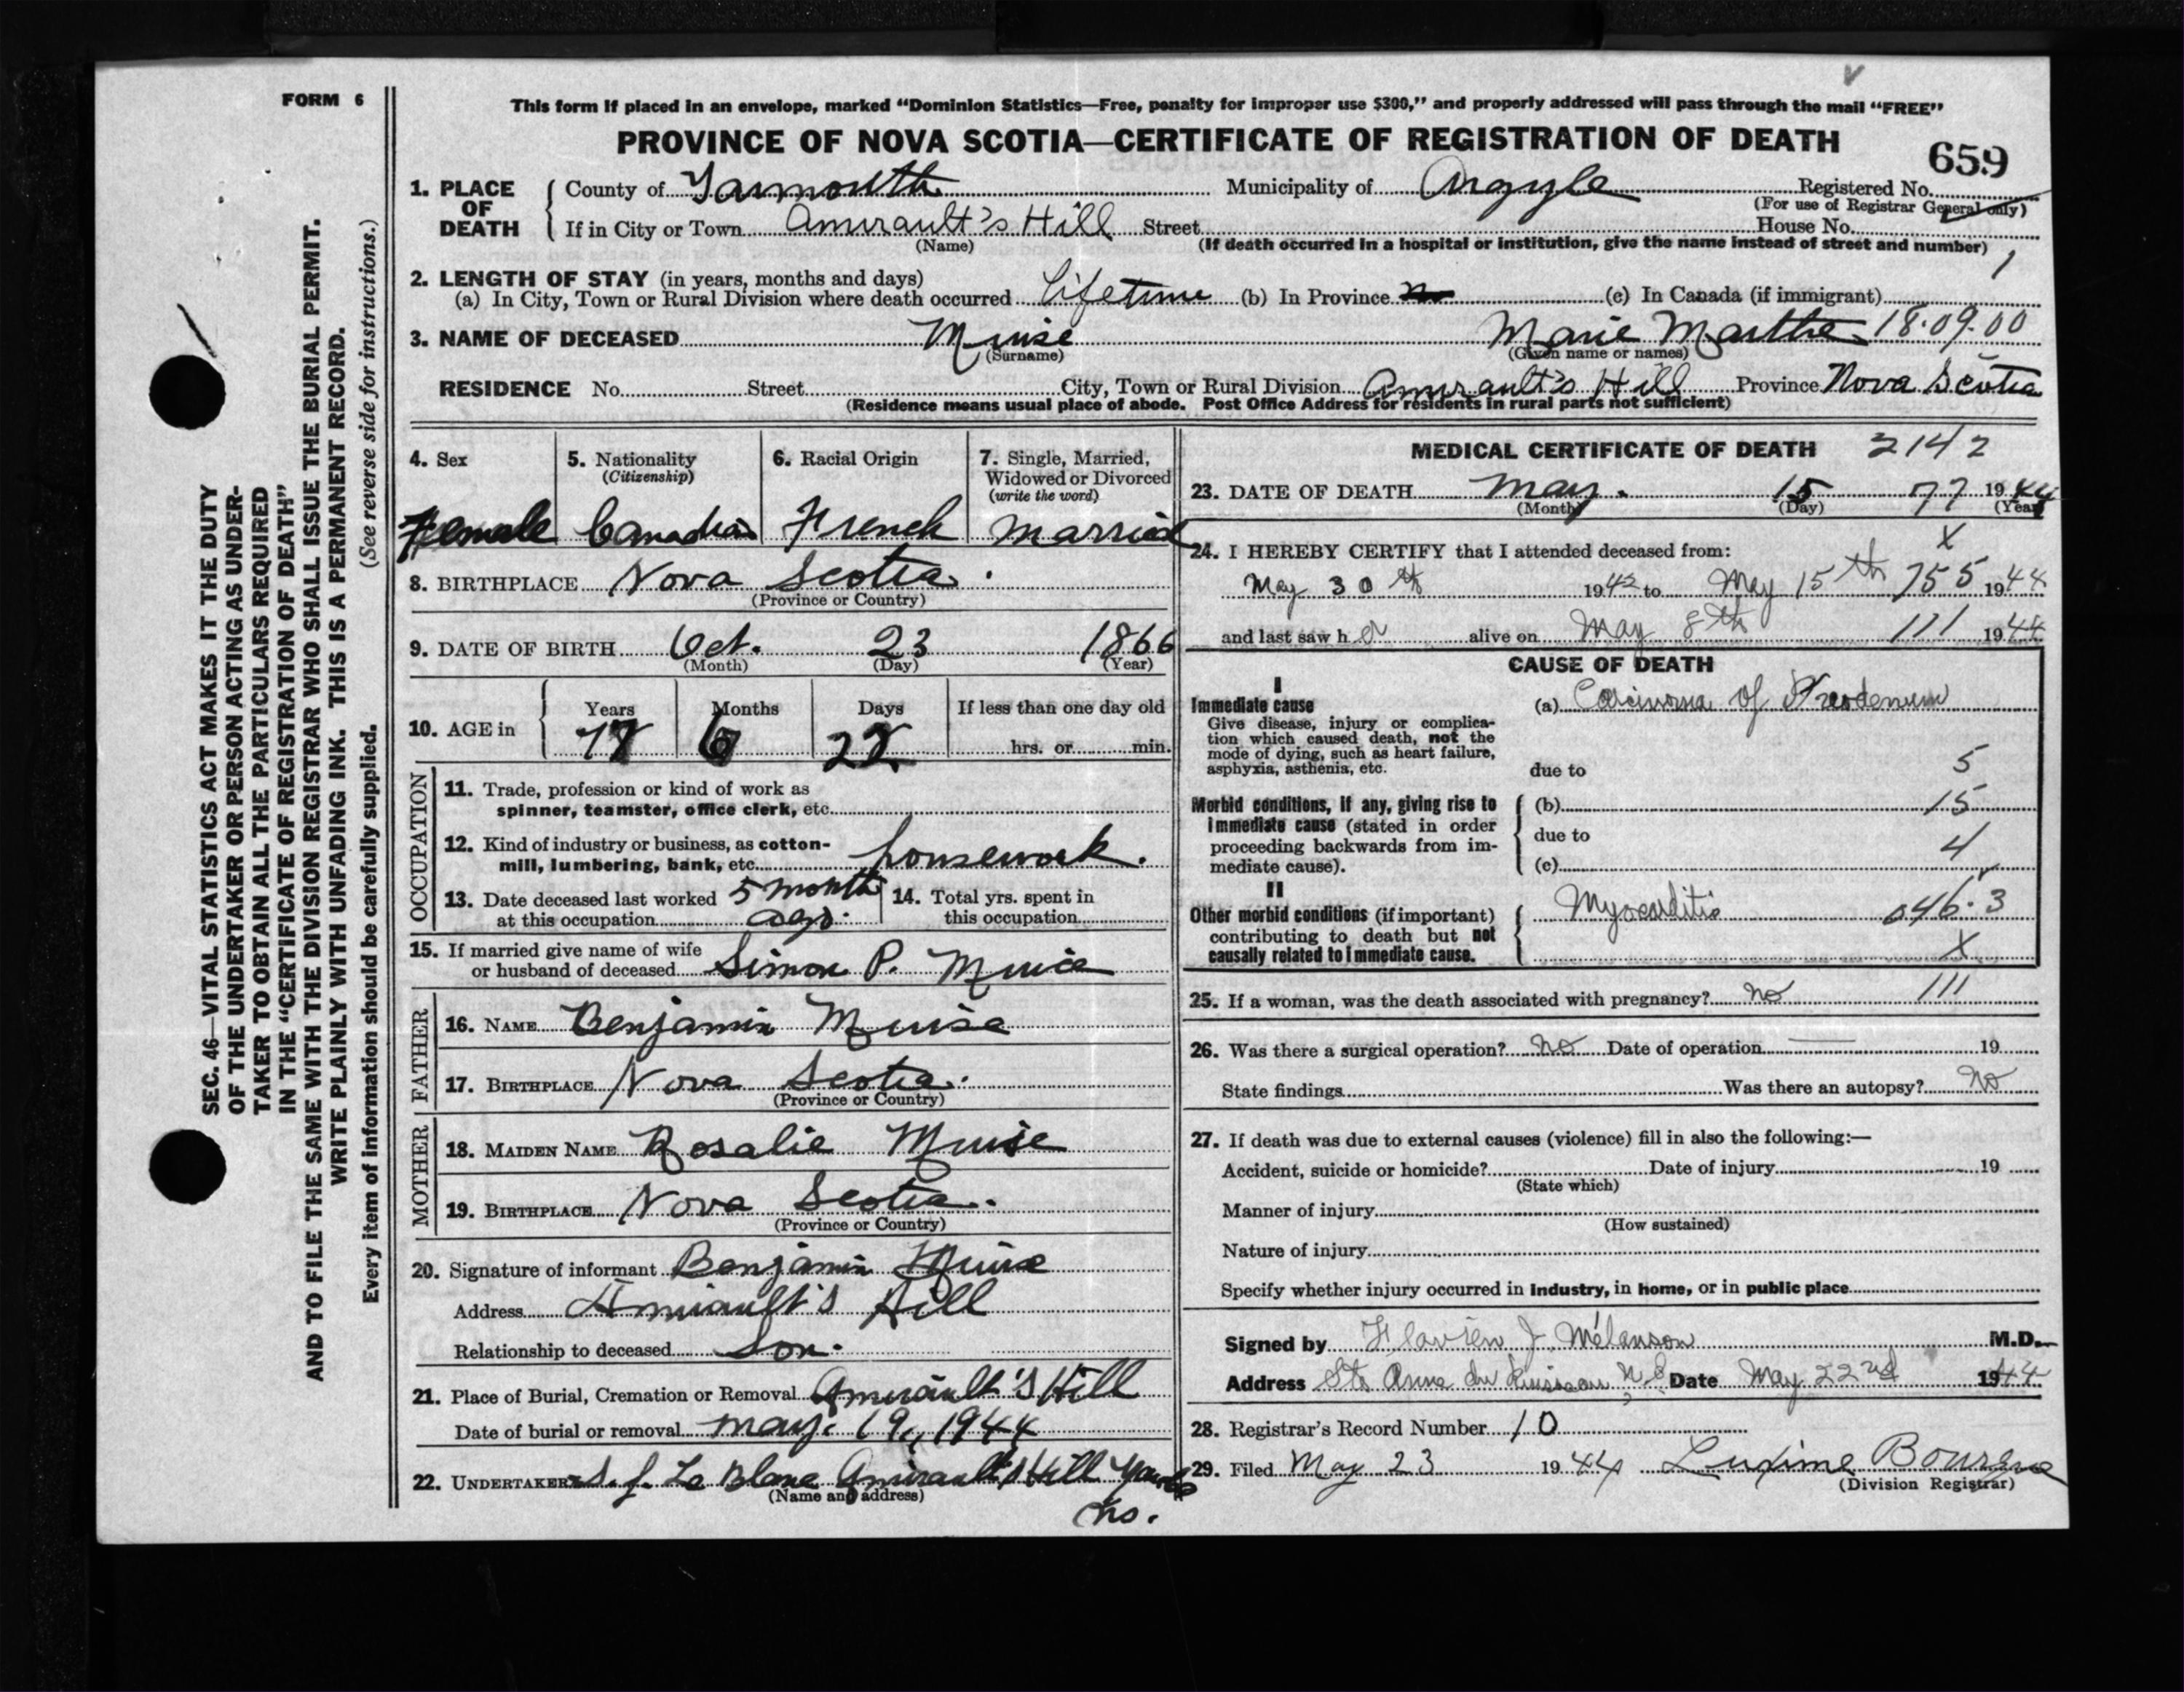 FORM 6
This form if placed in an envelope, marked “Dominion Statistics—Free, penalty for improper use $300,” and properly addressed will pass through the mail “FREE”
PROVINCE OF NOVA SCOTIA—CERTIFICATE OF REGISTRATION OF DEATH
659
1. PLACE OF DEATH
County of Yarmouth Municipality of Argyle Registered No.
(For use of Registrar General only)
If in City or Town Amirault's Hill Street House No.
(Name) (If death occurred in a hospital or institution, give the name instead of street and number)
1
2. LENGTH OF STAY (in years, months and days)
(a) In City, Town or Rural Division where death occurred Lifetime (b) In Province (c) In Canada (if immigrant)
3. NAME OF DECEASED Muise Marie Marthe 18.09.00
(Surname) (Given name or names)
RESIDENCE No. Street City, Town or Rural Division Amirault's Hill Province Nova Scotia
(Residence means usual place of abode. Post Office Address for residents in rural parts not sufficient)
4. Sex
Female
5. Nationality
(Citizenship)
Canadian
6. Racial Origin
French
7. Single, Married,
Widowed or Divorced
(write the word)
Married
8. BIRTHPLACE Nova Scotia.
(Province or Country)
9. DATE OF BIRTH Oct. 23 1866
(Month) (Day) (Year)
10. AGE in Years Months Days If less than one day old
77 6 22 hrs. or min.
OCCUPATION
11. Trade, profession or kind of work as
spinner, teamster, office clerk, etc.
12. Kind of industry or business, as cotton-
mill, lumbering, bank, etc. housework.
13. Date deceased last worked 5 month
at this occupation ago.
14. Total yrs. spent in
this occupation
15. If married give name of wife
or husband of deceased Simon P. Muise
FATHER
16. NAME Benjamin Muise
17. BIRTHPLACE Nova Scotia.
(Province or Country)
MOTHER
18. MAIDEN NAME Rosalie Muise
19. BIRTHPLACE Nova Scotia.
(Province or Country)
20. Signature of informant Benjamin Muise
Address Amirault's Hill
Relationship to deceased Son.
21. Place of Burial, Cremation or Removal Amirault's Hill
Date of burial or removal May. 19, 1944
22. UNDERTAKER S. J. Le Blanc Amirault's Hill Yarmouth
(Name and address)
NS.
MEDICAL CERTIFICATE OF DEATH 2142
23. DATE OF DEATH May. 15 77 1944
(Month) (Day) (Year)
X
24. I HEREBY CERTIFY that I attended deceased from:
May 30th 1942 to May 15th 755 1944
and last saw her alive on May 8th 111 1944
CAUSE OF DEATH
I
Immediate cause
Give disease, injury or complica-
tion which caused death, not the
mode of dying, such as heart failure,
asphyxia, asthenia, etc.
(a) Carcinoma of
due to 5
Morbid conditions, if any, giving rise to
immediate cause (stated in order
proceeding backwards from im-
mediate cause).
(b) 15
due to 4
(c)
II
Other morbid conditions (if important)
contributing to death but not
causally related to immediate cause.
Myocarditis 046.3
X
25. If a woman, was the death associated with pregnancy? no 111
26. Was there a surgical operation? no Date of operation — 19
State findings Was there an autopsy? No
27. If death was due to external causes (violence) fill in also the following:—
Accident, suicide or homicide? Date of injury 19
(State which)
Manner of injury
(How sustained)
Nature of injury
Specify whether injury occurred in industry, in home, or in public place
Signed by Flavien J. Mélanson M.D.
Address Ste Anne du Ruisseau N.S. Date May 22nd 1944
28. Registrar's Record Number 10
29. Filed May 23 1944 Luxime Bourque
(Division Registrar)
SEC. 46—VITAL STATISTICS ACT MAKES IT THE DUTY
OF THE UNDERTAKER OR PERSON ACTING AS UNDER-
TAKER TO OBTAIN ALL THE PARTICULARS REQUIRED
IN THE “CERTIFICATE OF REGISTRATION OF DEATH”
AND TO FILE THE SAME WITH THE DIVISION REGISTRAR WHO SHALL ISSUE THE BURIAL PERMIT.
WRITE PLAINLY WITH UNFADING INK. THIS IS A PERMANENT RECORD.
Every item of information should be carefully supplied. (See reverse side for instructions.)